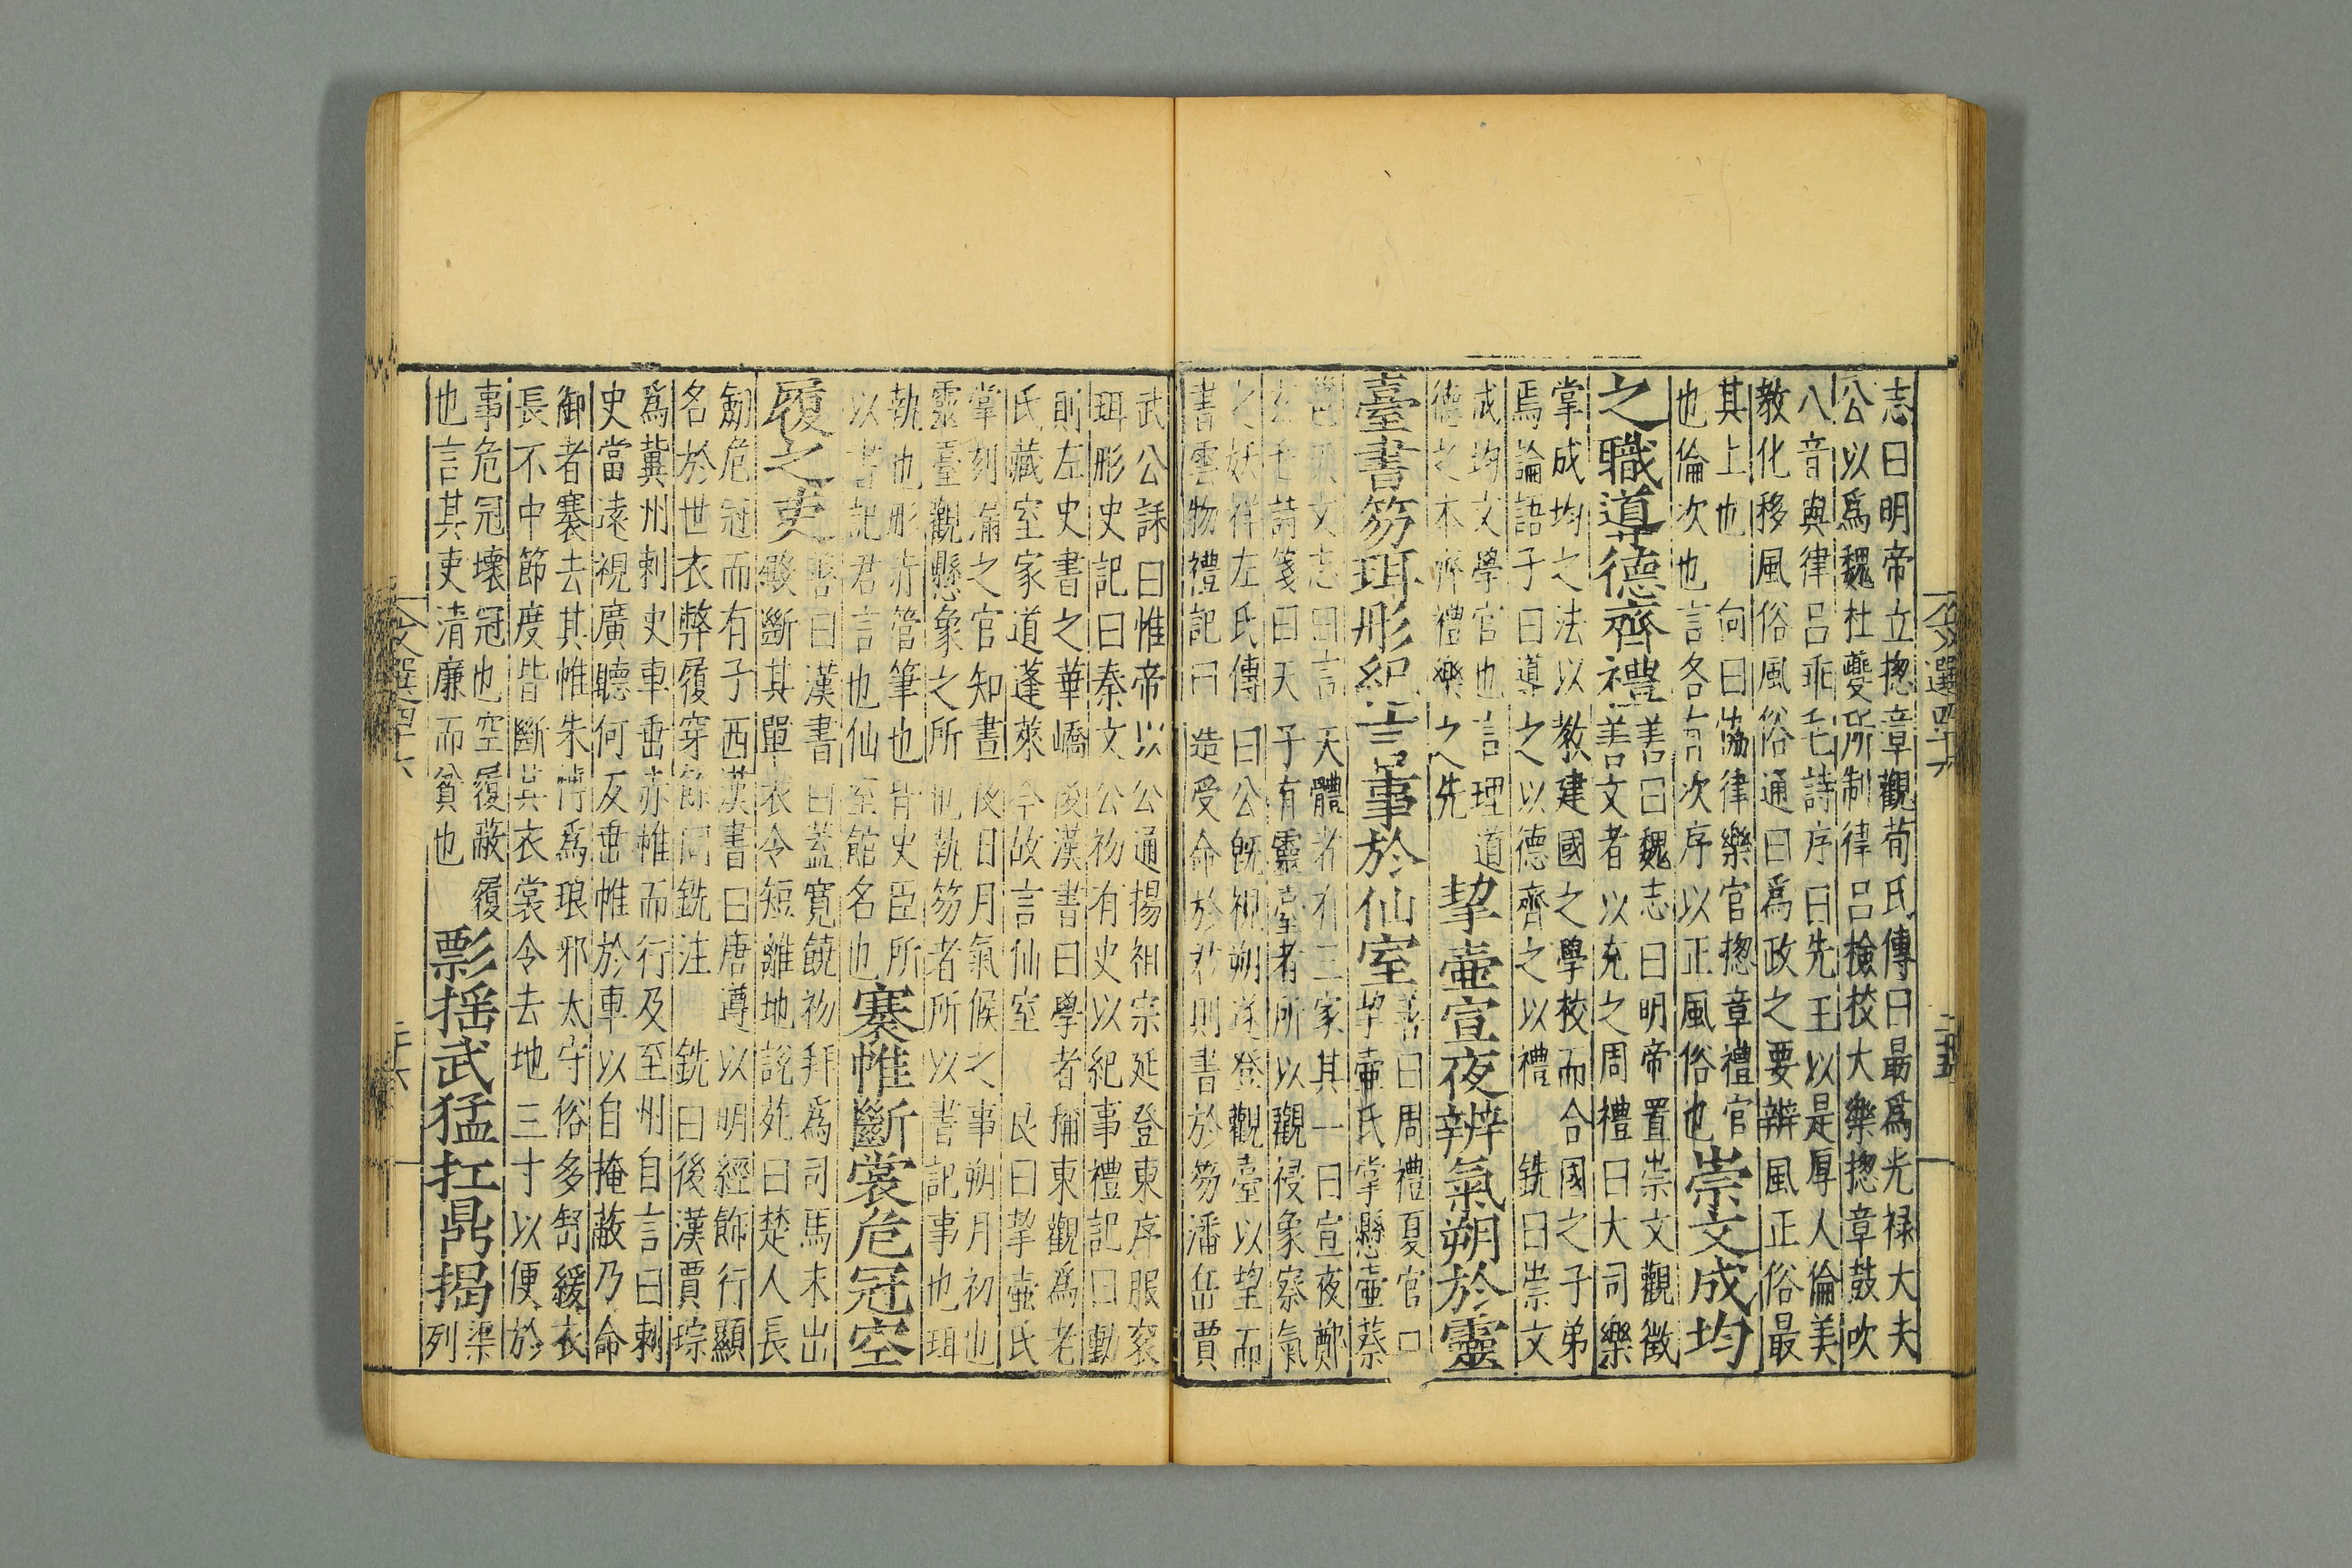 志曰明帝立揔章觀荀氏傳曰最爲光禄大夫
公以爲魏杜夔所制律吕撿挍大樂揔章鼓吹
八音與律吕乖毛詩序曰先王以是厚人倫美
教化移風俗風俗通曰爲政之要辨風正俗最
其上也 向曰協律樂官揔章禮官
也倫次也言各有次序以正風俗也
崇文成均
之職導德齊禮
善曰魏志曰明帝置崇文觀徵
善文者以充之周禮曰大司樂
掌成均之法以教建國之學校而合國之子弟
焉論語子曰導之以德齊之以禮 銑曰崇文
成均文學官也言理道
德之本齊禮樂之先
挈壷宣夜辨氣朔於靈
臺書笏珥彤紀言事於仙室
善曰周禮夏官
挈壷氏掌懸壷蔡
邕天文志曰言天體者有三家其一曰宣夜鄭
玄毛詩箋曰天子有靈臺者所以觀祲象察氣
之妖祥左氏傳曰公旣視朔遂登觀臺以望而
書雲物禮記曰造受命於君則書於笏潘岳賈
武公誄曰惟帝以公通揚祖宗延登東序服衮
珥彤史記曰秦文公初有史以紀事禮記曰動
則左史書之華嶠後漢書曰學者稱東觀爲老
氏藏室家道蓬萊今故言仙室 良曰挈壷氏
掌刻漏之官知晝夜日月氣候之事朔月初也
靈臺觀懸象之所也執笏者所以書記事也珥
執也彤赤管筆也皆史臣所
以書記君言也仙室館名也
褰帷斷裳危冠空
履之吏
善曰漢書曰蓋寛饒初拜爲司馬未出
殿斷其單衣令短離地說苑曰楚人長
劒危冠而有子西漢書曰唐遵以明經飾行顯
名於世衣弊履穿餘同銑注 銑曰後漢賈琮
爲兾州刺史車垂赤帷而行及至州自言曰刺
史當遠視廣聽何反垂帷於車以自掩蔽乃命
御者褰去其帷朱博爲琅邪太守俗多舒緩衣
長不中節度皆斷其衣裳令去地三寸以便於
事危冠壞冠也空履蔽履
也言其吏清廉而貧也
彯揺武猛扛鼎揭
渠
列